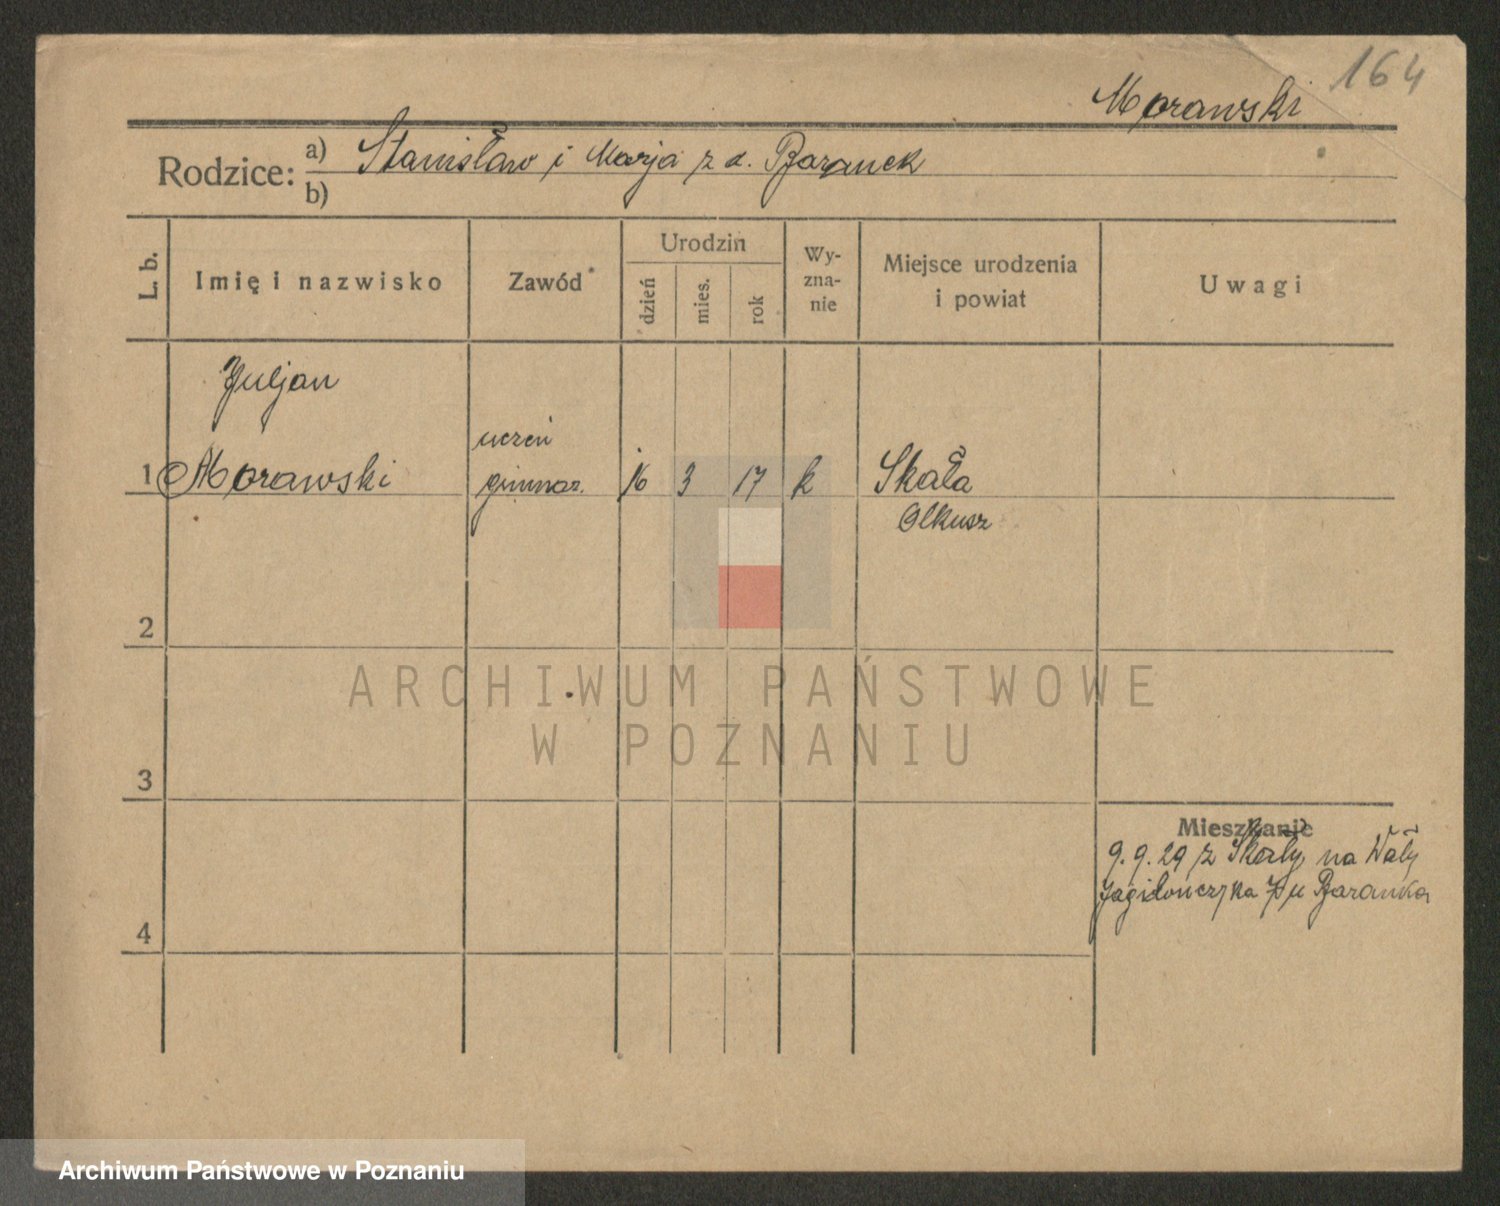 164
Morawski
Rodzice: a) Stanisław i Marja z d. Baranek
b)
L. b.
Imię i nazwisko
Zawód
Urodzin
dzień
mies.
rok
Wy-
zna-
nie
Miejsce urodzenia
i powiat
Uwagi
Juljan
uczeń
1 Morawski gimnaz. 16 3 17 k Skała
Olkusz
2
ARCHIWUM PAŃSTWOWE
W POZNANIU
3
Mieszkanie
9.9.29 z Skały na Wały
u Baranka
4
Archiwum Państwowe w Poznaniu